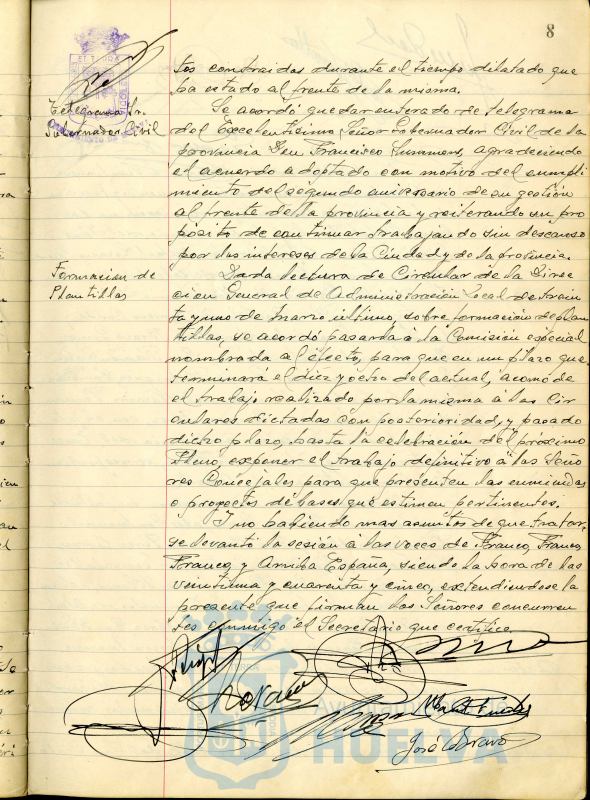 8
tos contraidos durante el tiempo dilatado que
ha estado al frente de la misma.
Telegrama Sr.
Gobernador Civil
Se acordó quedar enterado de telegrama
del Excelentisimo Señor Gobernador Civil de la
provincia Don Francisco Summers, agradeciendo
el acuerdo adoptado con motivo del cumpli
miento del segundo aniversario de su gestión
al frente de la provincia y reiterando su pro
pósito de continuar trabajando sin descanso
por los intereses de la Ciudad y de la provincia.
Formacion de
Plantillas
Dada lectura de Circular de la Direc
cion General de Administración Local de trein
ta y uno de Marzo último, sobre formación de plan
tillas, se acordó pasarla á la Comisión especial
nombrada al efecto, para que en un plazo que
terminará el diez y ocho del actual, acomode
el trabajo realizado por la misma á las Cir
culares dictadas con posterioridad, y pasado
dicho plazo, hasta la celebración del próximo
Pleno, exponer el trabajo definitivo á los Seño
res Concejales para que presenten las enmiendas
o proyectos de bases que estimen pertinentes.
Y no habiendo mas asuntos de que tratar,
se levantó la sesión á las voces de Franco, Franco,
Franco, y Arriba España, siendo la hora de las
veintiuna y cuarenta y cinco, extendiendose la
presente que firman los Señores concurren
tes conmigo el Secretario que certifico.
José Bravo
Ayuntamiento de
HUELVA